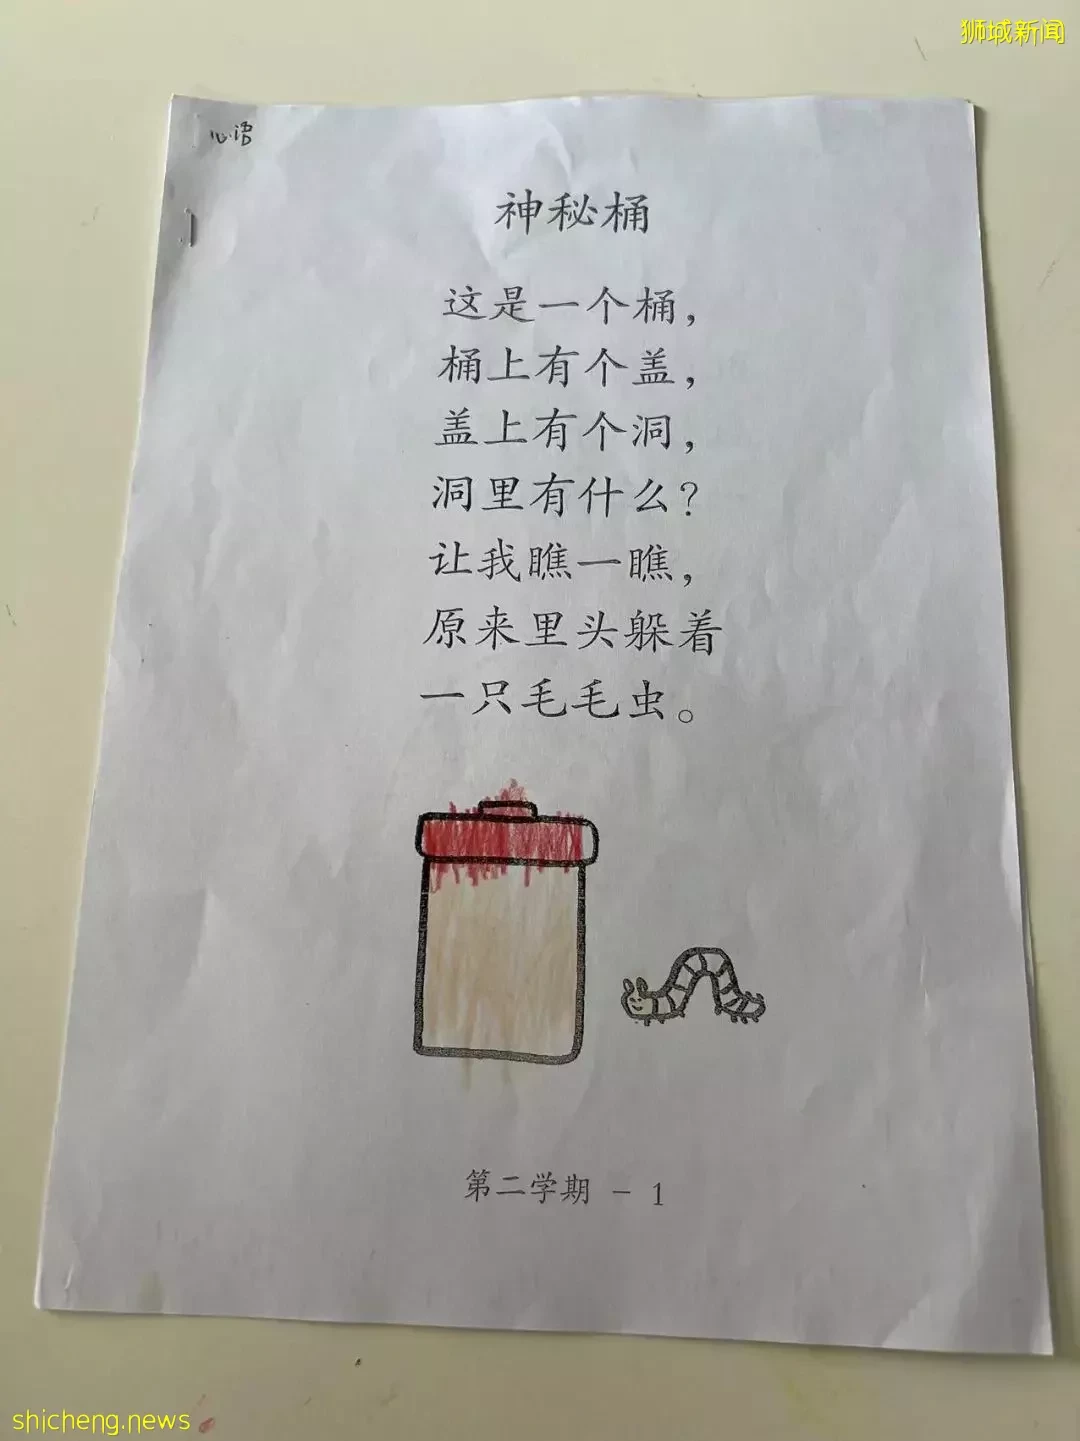 狮城新闻
心语
神秘桶
这是一个桶，
桶上有个盖，
盖上有个洞，
洞里有什么？
让我瞧一瞧，
原来里头躲着
一只毛毛虫。
第二学期 - 1
shicheng.news